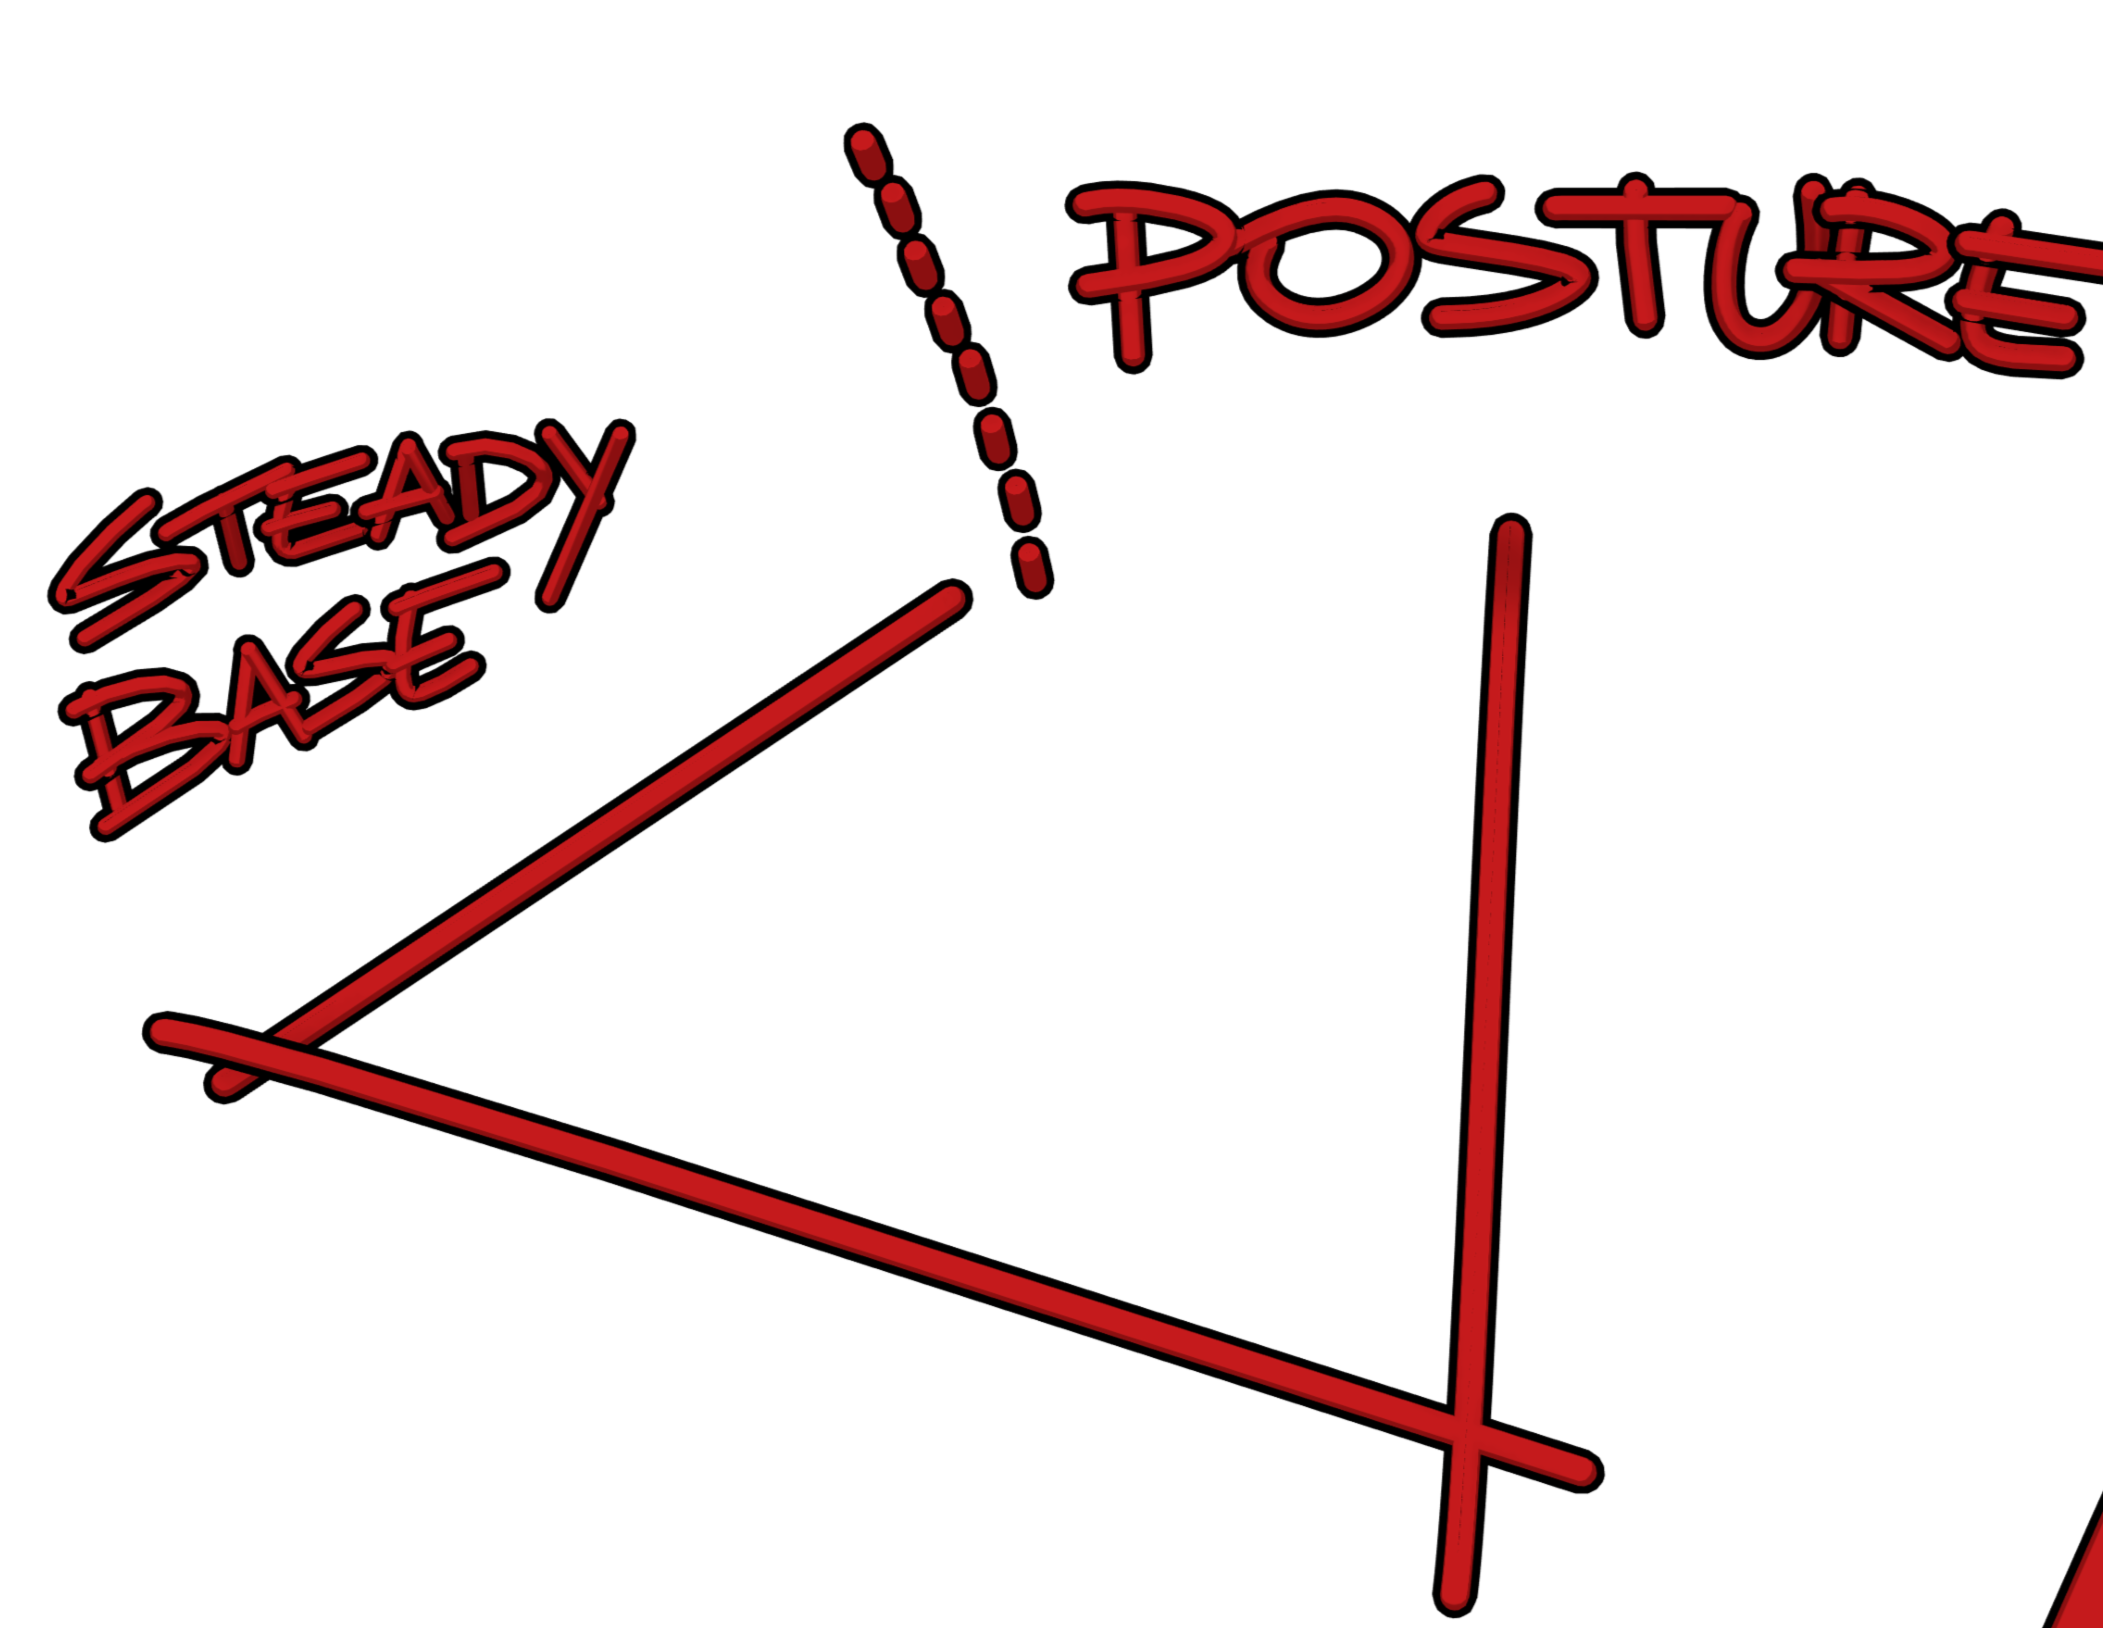 POSTURE
STEADY
BASE